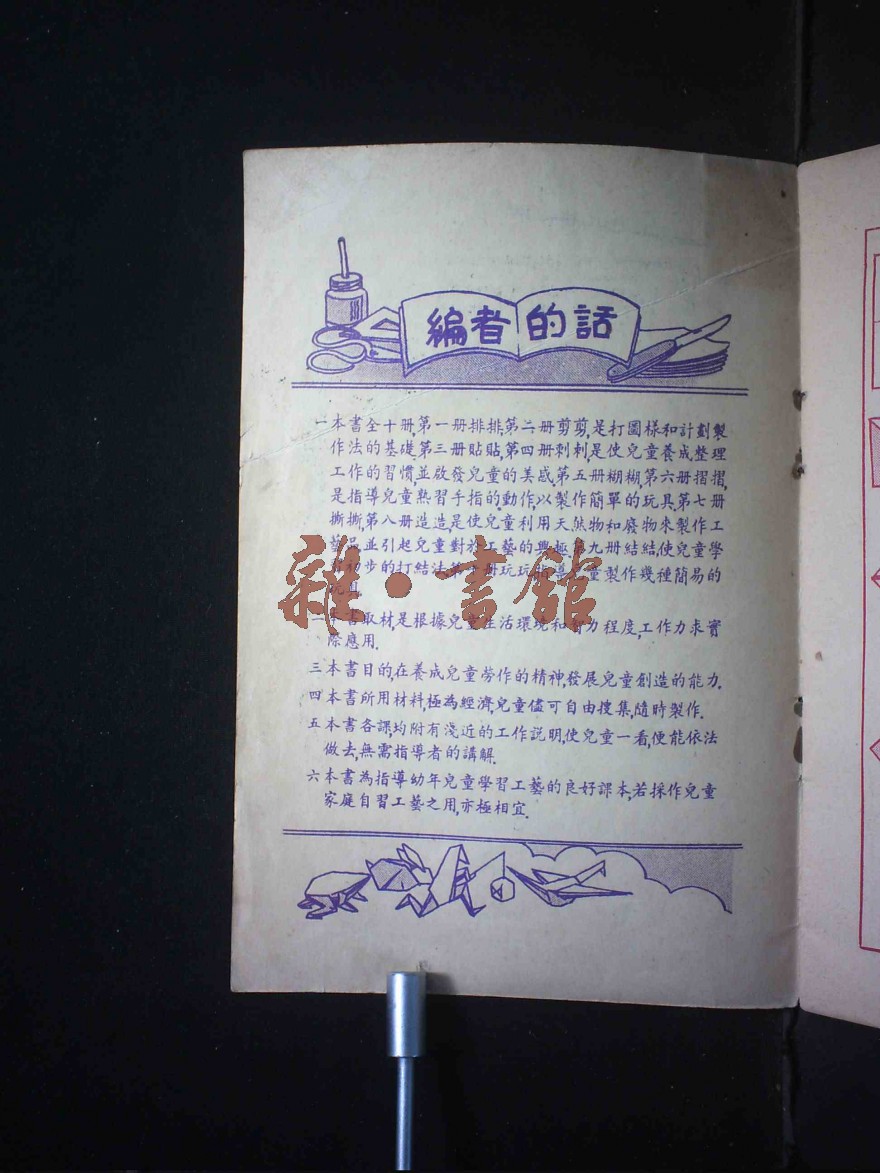 編者的話
一本書全十册,第一册排排,第二册剪剪,是打圖樣和計劃製
作法的基礎.第三册貼貼,第四册刺刺,是使兒童養成整理
工作的習慣,並啟發兒童的美感.第五册糊糊,第六册摺摺,
是指導兒童熟習手指的動作,以製作簡單的玩具.第七册
撕撕,第八册造造,是使兒童利用天然物和廢物來製作工
藝品,並引起兒童對於工藝的興極.第九册結結,使兒童學
初步的打結法.第十册玩玩,兒童製作幾種簡易的
玩具.
本書取材,是根據兒童生活環境和智力程度,工作力求實
際應用.
三本書目的,在養成兒童勞作的精神,發展兒童創造的能力.
四本書所用材料,極為經濟,兒童儘可自由搜集,隨時製作.
五本書各課均附有淺近的工作説明,使兒童一看,便能依法
做去,無需指導者的講解.
六本書為指導幼年兒童學習工藝的良好課本,若採作兒童
家庭自習工藝之用,亦極相宜.
雜·書館